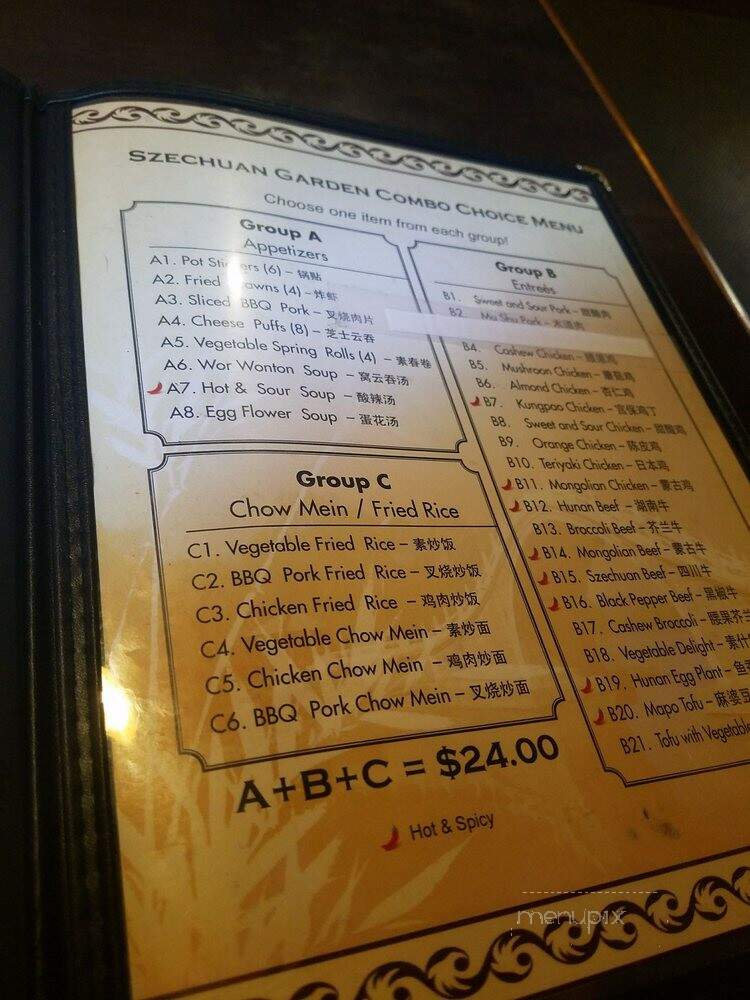 SZECHUAN GARDEN COMBO CHOICE MENU
Choose one item from each group!
Group A
Appetizers
A1. Pot Stickers (6) – 锅贴
A2. Fried Prawns (4) – 炸虾
A3. Sliced BBQ Pork – 叉烧肉片
A4. Cheese Puffs (8) – 芝士云吞
A5. Vegetable Spring Rolls (4) – 素春卷
A6. Wor Wonton Soup – 窝云吞汤
A7. Hot & Sour Soup – 酸辣汤
A8. Egg Flower Soup – 蛋花汤
Group C
Chow Mein / Fried Rice
C1. Vegetable Fried Rice – 素炒饭
C2. BBQ Pork Fried Rice – 叉烧炒饭
C3. Chicken Fried Rice – 鸡肉炒饭
C4. Vegetable Chow Mein – 素炒面
C5. Chicken Chow Mein – 鸡肉炒面
C6. BBQ Pork Chow Mein – 叉烧炒面
Group B
Entreés
B1. Sweet and Sour Pork – 甜酸肉
B2. Mu Shu Pork – 木须肉
B4. Cashew Chicken – 腰果鸡
B5. Mushroon Chicken – 蘑菇鸡
B6. Almond Chicken – 杏仁鸡
B7. Kungpao Chicken – 宫保鸡丁
B8. Sweet and Sour Chicken – 甜酸鸡
B9. Orange Chicken – 陈皮鸡
B10. Teriyaki Chicken – 日本鸡
B11. Mongolian Chicken – 蒙古鸡
B12. Hunan Beef – 湖南牛
B13. Broccoli Beef – 芥兰牛
B14. Mongolian Beef – 蒙古牛
B15. Szechuan Beef – 四川牛
B16. Black Pepper Beef – 黑椒牛
B17. Cashew Broccoli – 腰果芥兰
B18. Vegetable Delight – 素什
B19. Hunan Egg Plant – 鱼
B20. Mapo Tofu – 麻婆豆
B21. Tofu with Vegetable
A+B+C = $24.00
Hot & Spicy
menupix